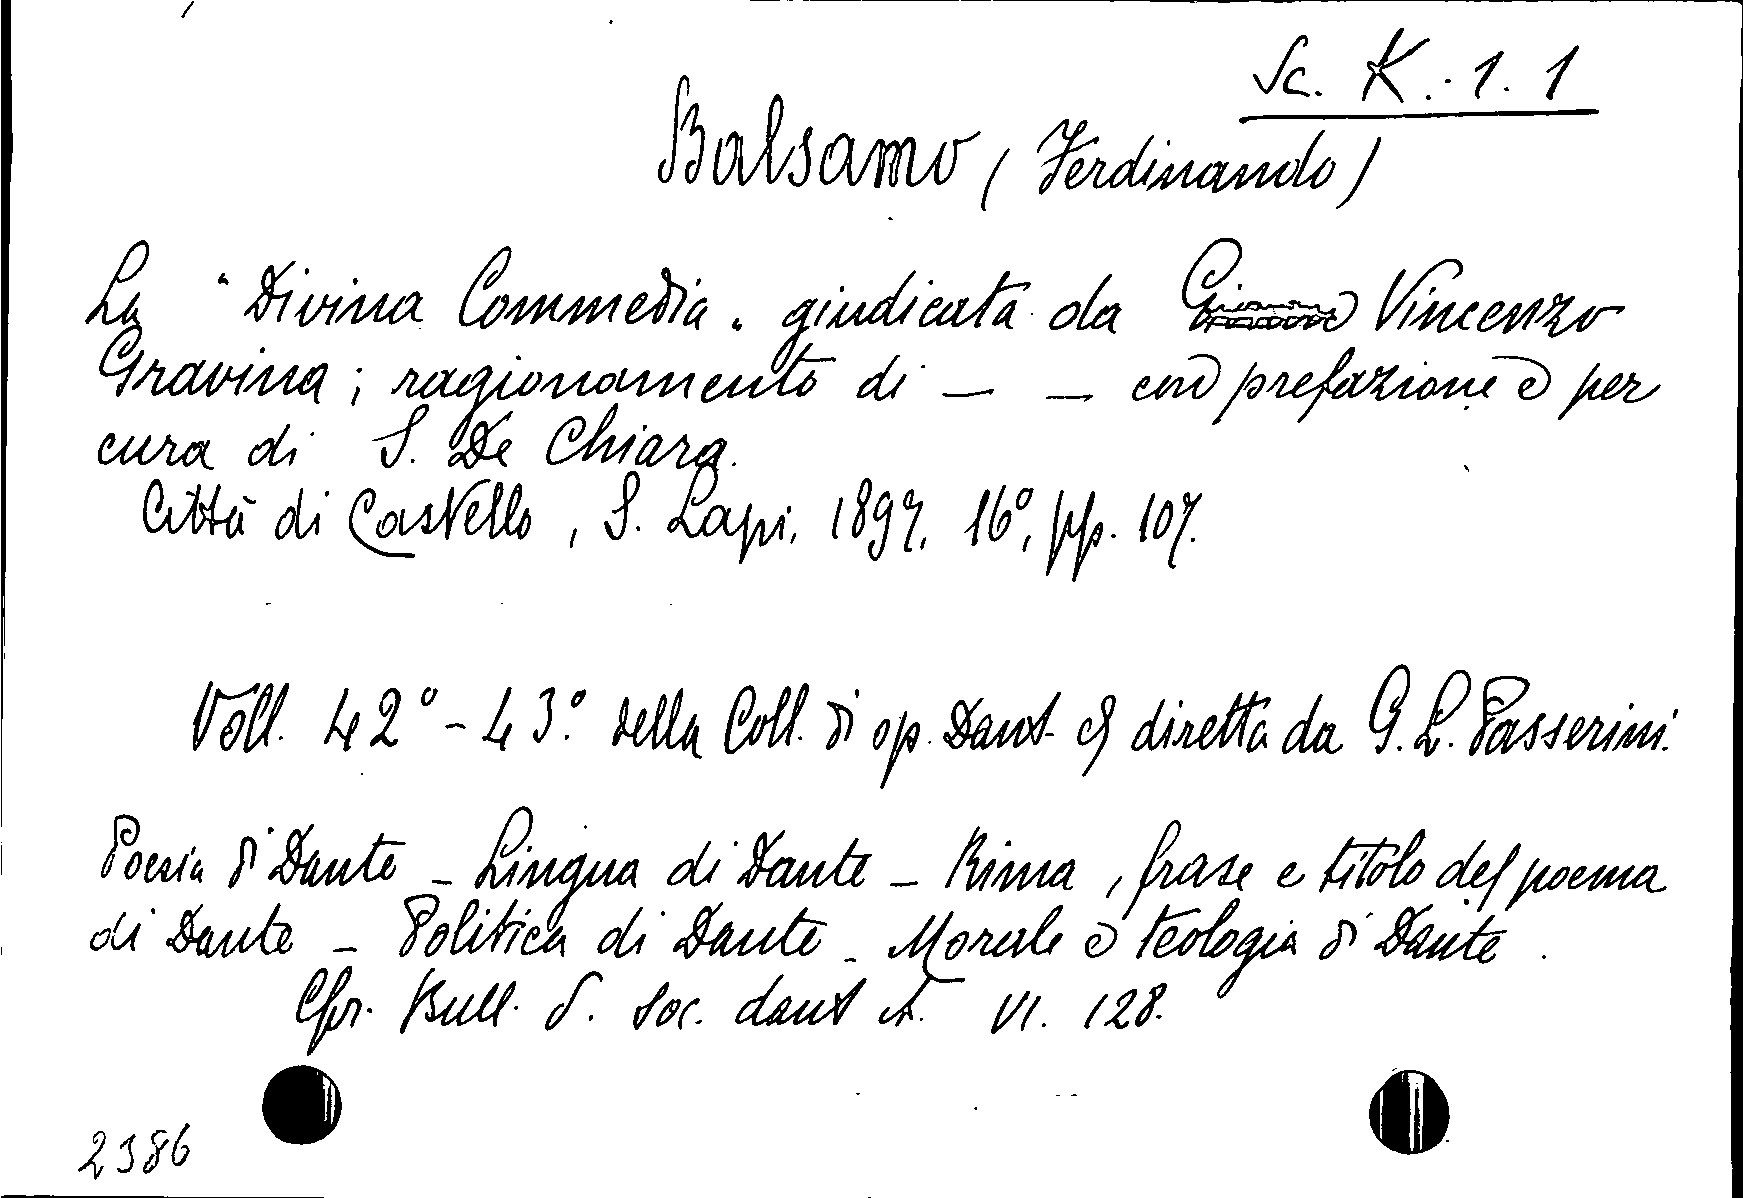 Sc. K. 1. 1
Balsamo (Ferdinando)
La "Divina Commedia" giudicata da Vincenzo
Gravina; ragionamento di — — con prefazione e per
cura di S. De Chiara.
Città di Castello, S. Lapi, 1897, 16°, pp. 107.
Voll. 42° - 43° della Coll. di op. Dant. diretta da G. L. Passerini.
Poesia di Dante - Lingua di Dante - Rima, frase e titolo del poema
di Dante - Politica di Dante - Morale e teologia di Dante.
Cfr. Bull. d. Soc. dant. it. VI. 128.
2386